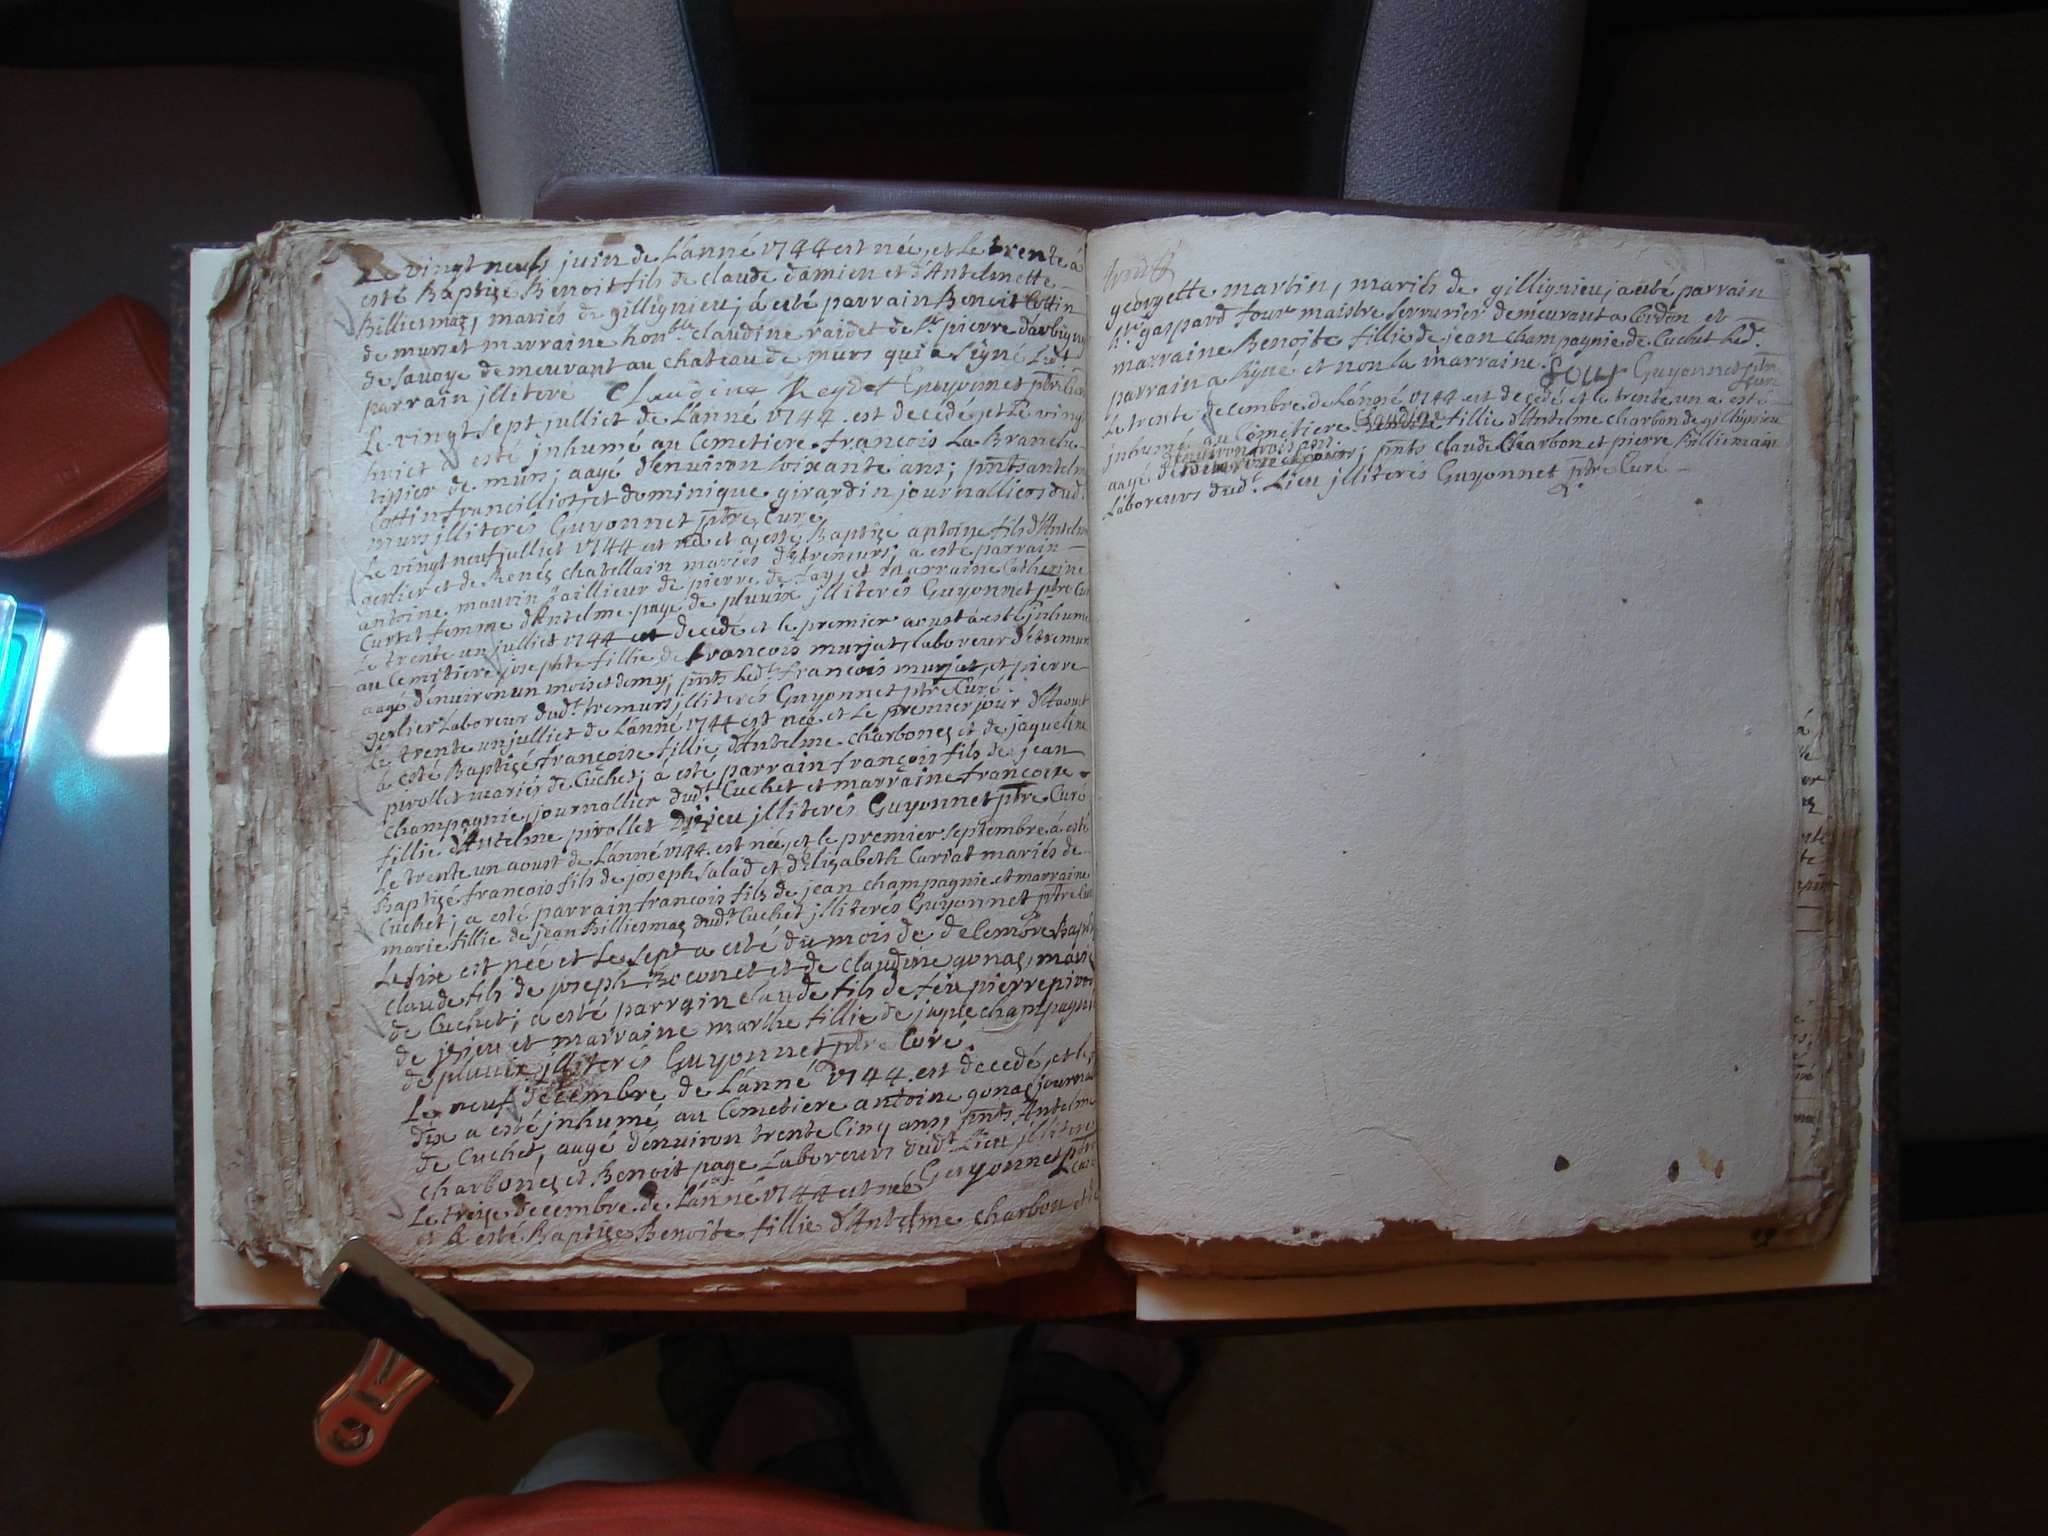 Le vingt neufs juin de L'anné 1744 est née, et Le trente á
esté Baptizé Benoit fils de claude damien et d'Antelmette
Billiemaz, mariés de gillignieu; á esté parrain Benoit Cottin
de murs et marraine hon.ble claudine raidet de St pierre d'arbigny
de savoye demeurant au chateau de murs qui a signé Led.t
parrain jlliteré Claudine Reydet Guyonnet ptre Curé
Le vingt sept julliet de L'anné 1744 est decedé, et Le vingt
huict a esté jnhumé au Cemetiere françois La Branche
de murs; aagé d'enuiron soixante ans; pnts antelme
Cottin francillion et dominique girardin journalliers dud.
murs jlliterés Guyonnet ptre, Curé,
Le vingt neuf julliet 1744 est né et a esté Baptizé antoine fils d'Antelme
gerlier et de Renés chatellain mariés d'Etremurs; a esté parrain
antoine maurin tailleur de pierre de fay, et marraine Catherine
Curtet femme d'Antelme page de pluuix jlliterés Guyonnet ptre Curé
Le trente un julliet 1744 est decedé et le premier aoust a esté jnhumé
au Cemetiere josephte fillie de françois murjat, laboreur d'etremurs
aagé d'enuiron un mois et demy; pnts Led.t françois murjat, et pierre
gerlier Laboreur dud.t tremurs jlliterés Guyonnet ptre Curé.
Le trente un julliet de L'anné 1744 est née et Le premier jour d'Aoust
a esté Baptizé françoise fillie d'Antelme charbonez et de jaqueline
pirollet mariés de Cuchet; á esté parrain françois fils de jean
champagnie, journallier dud.t Cuchet et marraine françoise
fillie d'Antelme pirollet D'jzieu jlliterés Guyonnet ptre Curé
Le trente un aoust de L'anné 1744 est née, et le premier septembre á esté
Baptizé françois fils de joseph salad et d'Elizabeth Curtat mariés de
Cuchet; a esté parrain françois fils de jean champagnie et marraine
marie fillie de jean Billiemaz dud.t Cuchet jlliterés Guyonnet ptre Curé
Le six est née et Le sept a esté du mois de decembre Baptizé
claude fils de joseph et de claudine gonaz, mariés
de Cuchet; a esté parrain claude fils de feu pierre
de jzieu et marraine marthe fillie de jaque champagnie
de pluuix jlliterés Guyonnet ptre Curé.
Le neuf decembre de L'anné 1744 est decedé, et le
dix a esté jnhumé au Cemetiere antoine gonaz journallier
de Cuchet, aagé d'enuiron trente Cinq ans, pnts Antelme
charbonez et Benoit page Laboreurs dud.t Lieu jlliterés
Guyonnet ptre Curé
Le treize decembre de L'anné 1744 est née
et a esté Baptizé Benoite fillie d'Antelme charbon et de
georgette martin, mariés de gillignieu; a esté parrain
h.te gaspard four maistre serrurier demeurant a Cordon et
marraine Benoite fillie de jean champagnie de Cuchet Led.t
parrain a signé et non la marraine. FOUR Guyonnet ptre
Curé
Le trente decembre de L'anné 1744 est decedé et le trente un a esté
jnhumé au Cemetiere Claudine fillie d'Antelme charbon de gillignieu
d'enuiron trois ans
aagé; pnts claude Charbon et pierre Billiemaz
Laboreurs dud.t Lieu jlliterés Guyonnet ptre Curé